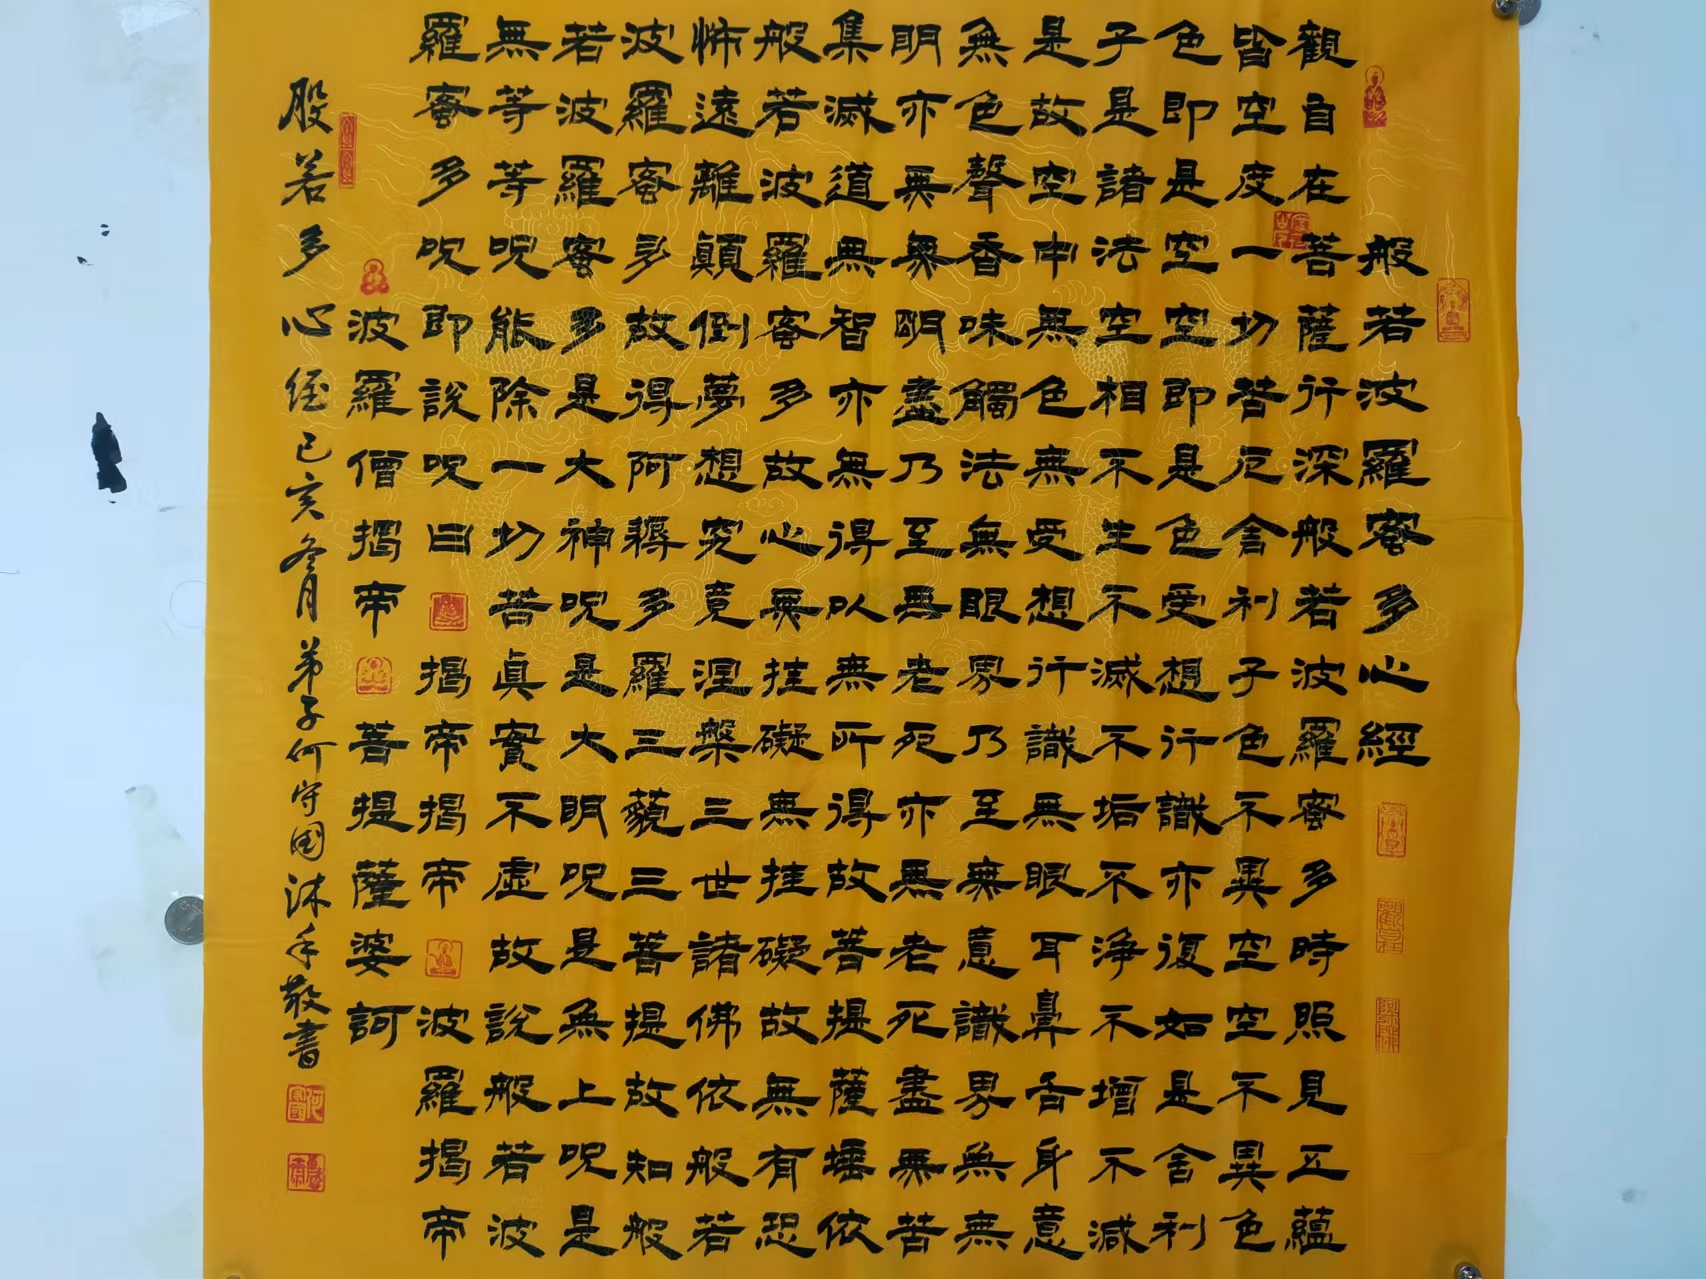 般若波羅蜜多心經
觀自在菩薩行深般若波羅蜜多時照見五蘊
皆空度一切苦厄舍利子色不異空空不異色
色即是空空即是色受想行識亦復如是舍利
子是諸法空相不生不滅不垢不淨不增不減
是故空中無色無受想行識無眼耳鼻舌身意
無色聲香味觸法無眼界乃至無意識界無無
明亦無無明盡乃至無老死亦無老死盡無苦
集滅道無智亦無得以無所得故菩提薩埵依
般若波羅蜜多故心無挂礙無挂礙故無有恐
怖遠離顛倒夢想究竟涅槃三世諸佛依般若
波羅蜜多故得阿耨多羅三藐三菩提故知般
若波羅蜜多是大神呪是大明呪是無上呪是
無等等呪能除一切苦真實不虛故說般若波
羅蜜多呪即說呪曰 揭帝揭帝 波羅揭帝
波羅僧揭帝 菩提薩婆訶
般若多心經己亥冬月弟子何守國沐手敬書